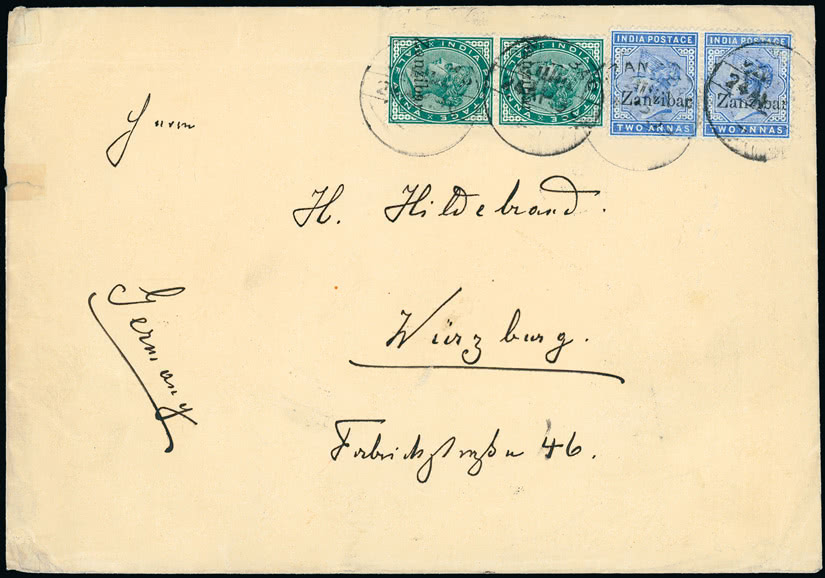 INDIA POSTAGE
Zanzibar
TWO ANNAS
INDIA POSTAGE
Zanzibar
TWO ANNAS
Zanzibar
Zanzibar
Herrn
H. Hildebrand.
Würzburg.
Fabrikstraße 46.
Germany